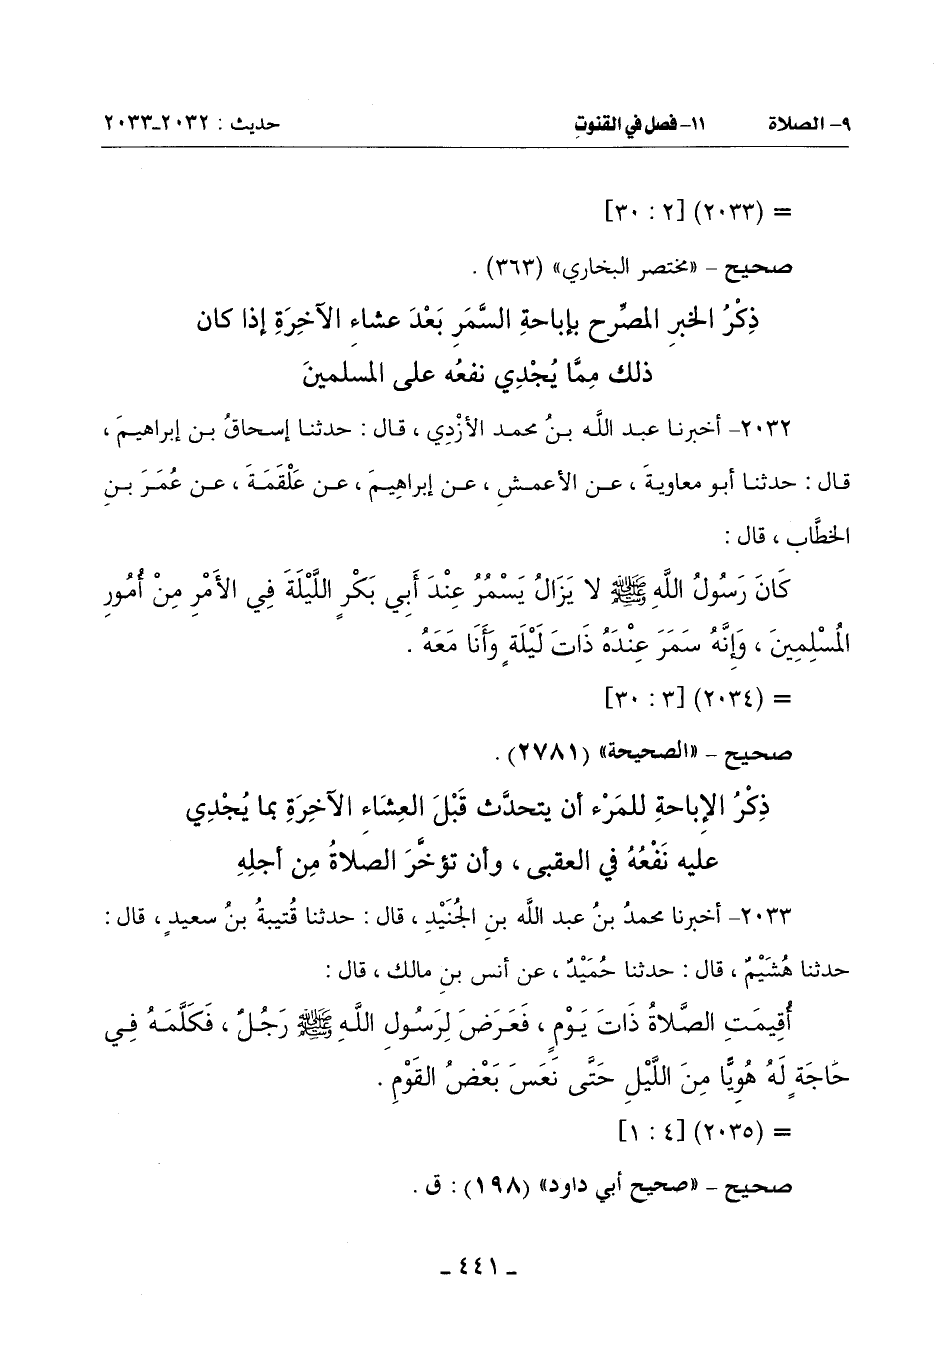 ٩- الصلاة ١١- فصل في القنوتِ حديث : ٢٠٣٢-٢٠٣٣
= (٢٠٣٣) [٢ : ٣٠]
صحيح - «مختصر البخاري» (٣٦٣) .
ذِكْرُ الخبرِ المصرِّح بإباحةِ السَّمَرِ بَعْدَ عشاءِ الآخِرَةِ إذا كان
ذلك مِمَّا يُجْدِي نفعُه على المسلمينَ
٢٠٣٢- أخبرنا عبد اللَّه بنُ محمد الأزْدِي ، قال : حدثنا إسحاقُ بن إبراهيمَ ،
قال : حدثنا أبو معاويةَ ، عن الأعمشِ ، عن إبراهِيمَ ، عن عَلْقَمَةَ ، عن عُمَرَ بنِ
الخطَّاب ، قال :
كَانَ رَسُولُ اللَّهِ ﷺ لا يَزَالُ يَسْمُرُ عِنْدَ أَبي بَكْرٍ اللَّيْلَةَ فِي الأَمْرِ مِنْ أُمُورِ
المُسْلِمِينَ ، وَإِنَّهُ سَمَرَ عِنْدَهُ ذَاتَ لَيْلَةٍ وَأَنَا مَعَهُ .
= (٢٠٣٤) [٣ : ٣٠]
صحيح - «الصحيحة» (٢٧٨١) .
ذِكْرُ الإباحةِ للمَرْء أن يتحدَّث قَبْلَ العِشَاءِ الآخِرَةِ بما يُجْدِي
عليه نَفْعُهُ في العقبى ، وأن تؤخَّرَ الصلاةُ مِن أجلِهِ
٢٠٣٣- أخبرنا محمدُ بنُ عبد اللَّه بنِ الجُنَيْدِ ، قال : حدثنا قُتيبةُ بنُ سعيدٍ ، قال :
حدثنا هُشَيْمٌ ، قال : حدثنا حُمَيْدٌ ، عن أنس بنِ مالك ، قال :
أُقِيمَتِ الصَّلاةُ ذَاتَ يَوْمٍ ، فَعَرَضَ لِرَسُولِ اللَّهِ ﷺ رَجُلٌ ، فَكَلَّمَهُ فِي
حَاجَةٍ لَهُ هُوِيًّا مِنَ اللَّيْلِ حَتَّى نَعَسَ بَعْضُ القَوْمِ .
= (٢٠٣٥) [٤ : ١]
صحيح - «صحيح أبي داود» (١٩٨) : ق .
- ٤٤١ -